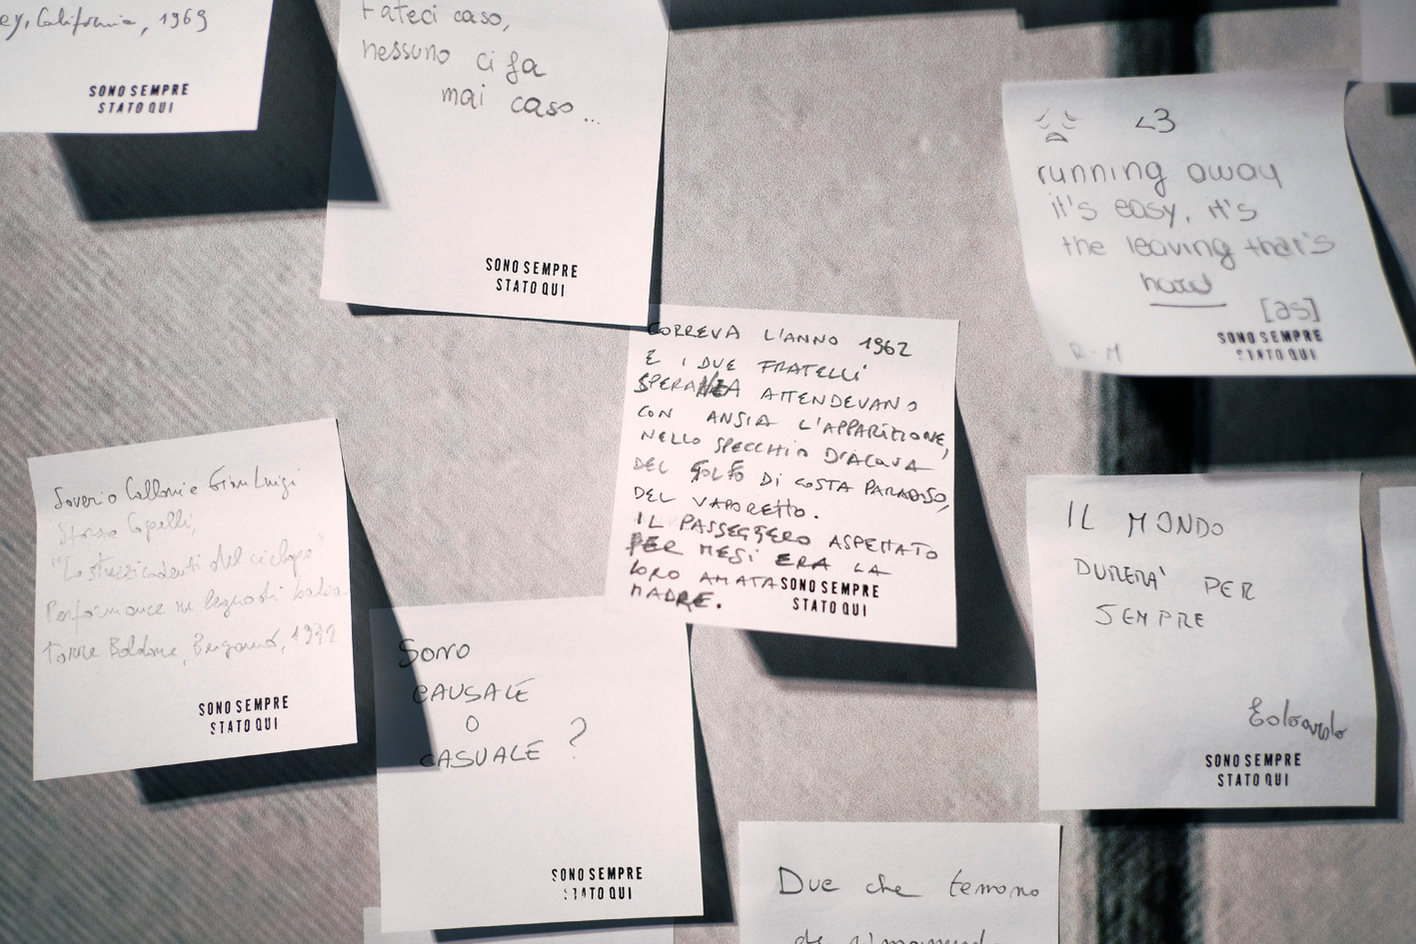 California, 1969
SONO SEMPRE
STATO QUI
Fateci caso,
nessuno ci fa
mai caso...
SONO SEMPRE
STATO QUI
<3
running away
it's easy, it's
the leaving that's
hard
[as]
R-M
SONO SEMPRE
STATO QUI
CORREVA L'ANNO 1962
E I DUE FRATELLI
SPERANZA ATTENDEVANO
CON ANSIA L'APPARIZIONE,
NELLO SPECCHIO D'ACQUA
DEL GOLFO DI COSTA PARADISO,
DEL VAPORETTO.
IL PASSEGGERO ASPETTATO
PER MESI ERA LA
LORO AMATA
MADRE.
SONO SEMPRE
STATO QUI
Gian Luigi
"Lo stuzzicadenti del ciclope"
Performance
Torre Boldone, Bergamo, 1972
SONO SEMPRE
STATO QUI
Sono
CAUSALE
O
CASUALE ?
SONO SEMPRE
STATO QUI
IL MONDO
DURERA' PER
SEMPRE
Edoardo
SONO SEMPRE
STATO QUI
Due che temono